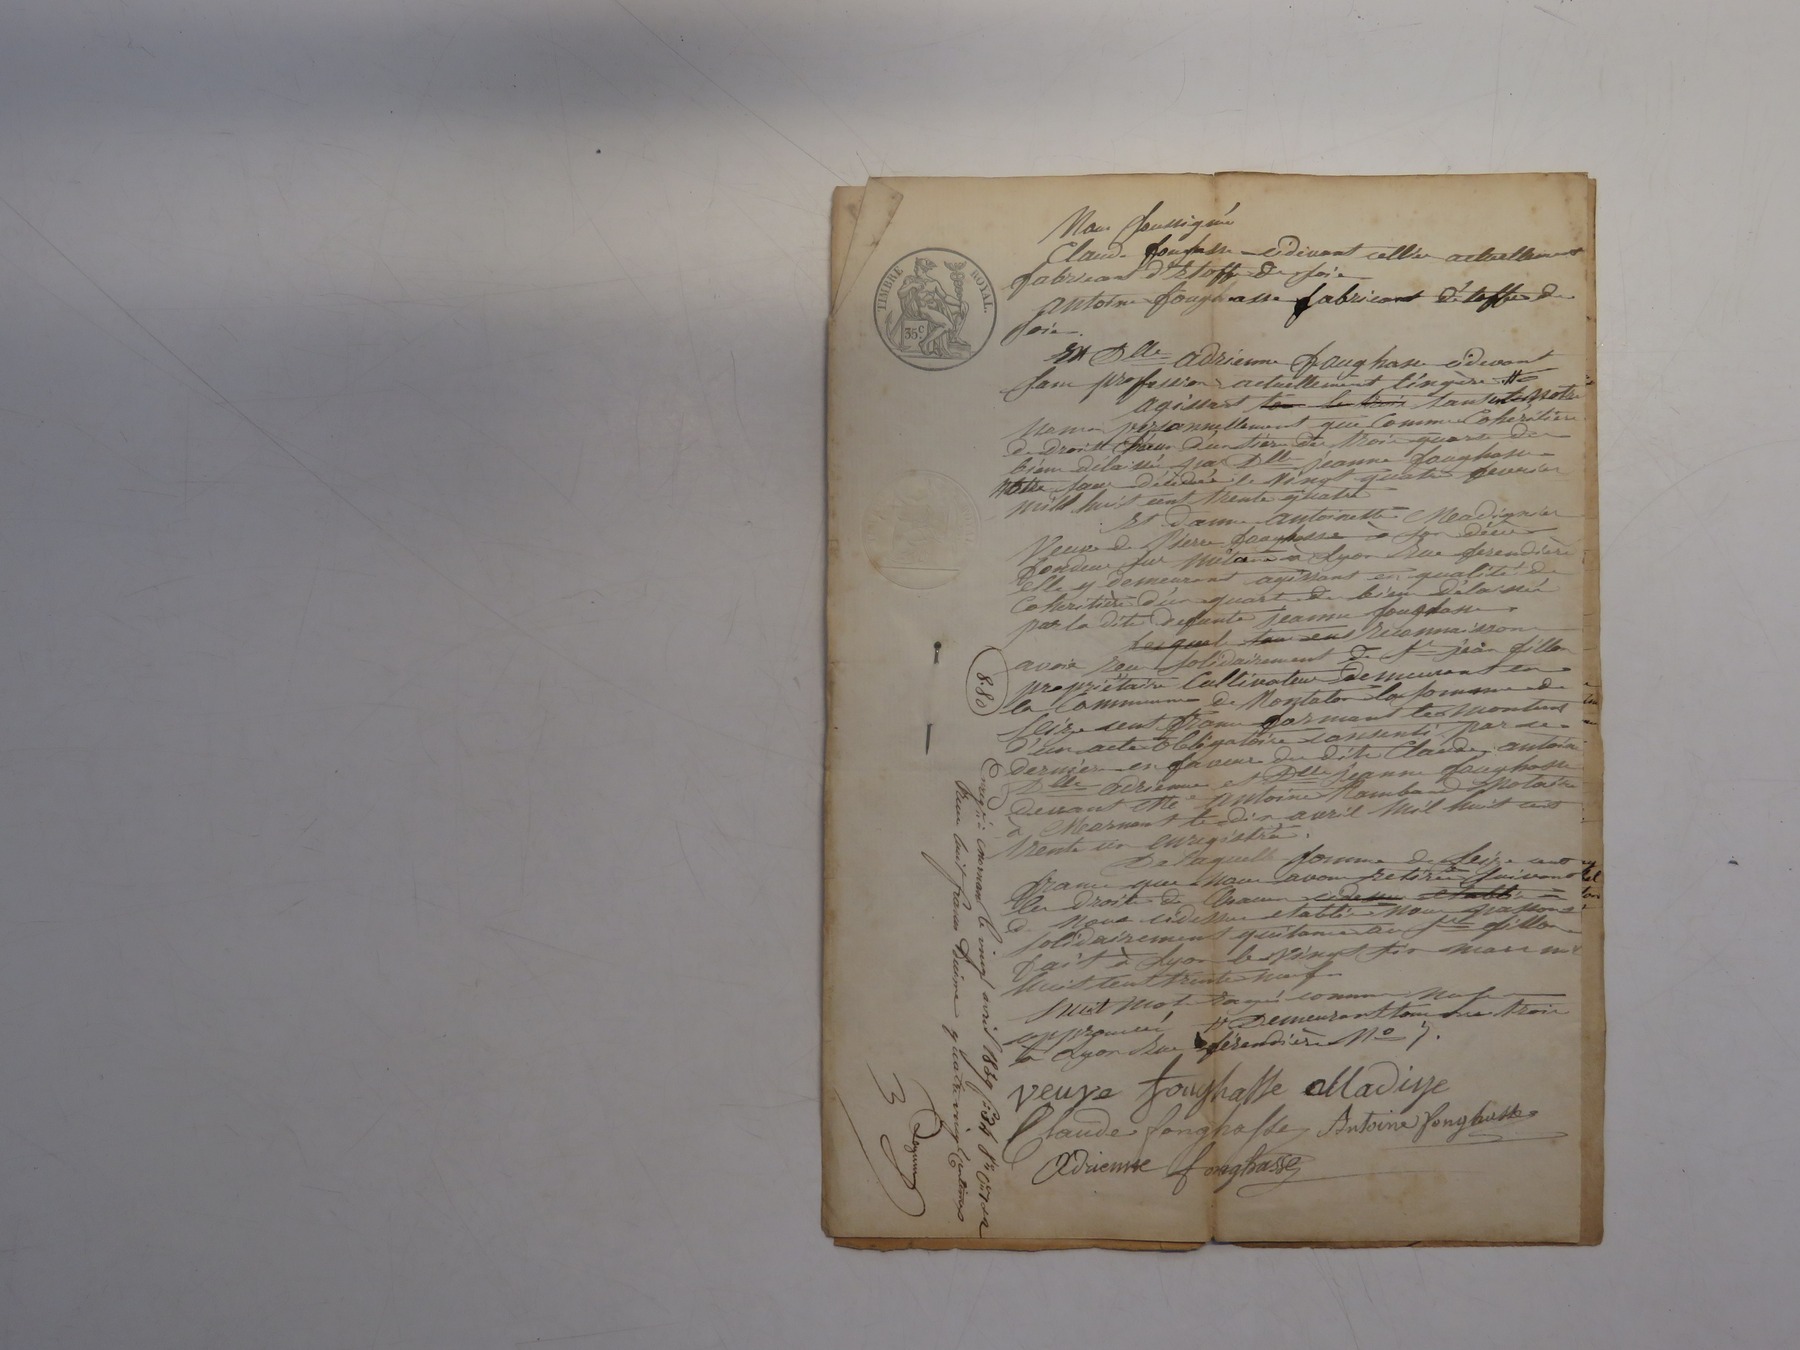 TIMBRE ROYAL.
35 c.
Nous soussignés
Claude foughasse cidevant sellier actuellement
fabricant d'Etoffe de soie
Antoine foughasse fabricant d'étoffes de
soie.
Et Dlle adrienne foughasse cidevant
sans profession actuellement lingère #
agissant tous les trois tant en notre
nom personnellement que comme Cohéritiers
de droit chacun d'un tiers de trois quart des
biens délaissés par Dlle jeanne foughasse
notre soeur décédée le vingt quatre fevrier
mill huit cent trente quatre
Et dame Antoinette Madignier
Veuve de Pierre foughasse à son décès
fondeur sur métaux à Lyon rue ferendière
Elle y demeurant agissant en qualité de
Cohéritière d'un quart de biens délaissés
par la dite defunte jeanne foughasse
Lesquels tous eus reconnaissons
avoir reçu solidairement de Sr jean fillon
propriétaire Cultivateur demeurant en
la Commune de la somme de
seize cent francs formant le montant
d'un acte obligatoire consenti par ce
dernier en faveur des dits Claude, antoine
Dlle adrienne et Dlle jeanne foughasse
devant Me Antoine Rambaud Notaire
à Mornant le dix avril mil huit cent
trente un enregistré.
De laquelle somme de seize cent
francs que nous avons retirée suivant
les droits de chacun cidessus etabli
Nous cidessus etabli nous passons
solidairement quitance au Sr fillon
fait à Lyon le vingt six mars mil
huit cent trente neuf
huit mots rayés comme nuls
approuvés # Demeurant tous les trois
à Lyon rue ferendière No 7.
veuve foughasse Madiye
Claude foughasse Antoine foughasse
Adrienne foughasse
880
Enregistré à mornant le vingt avril 1839 fo 34
Reçu huit francs Dixième quatre vingt centimes